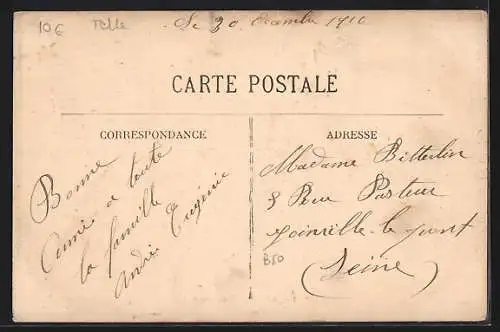 10€
Le 30 Décembre 1910
CARTE POSTALE
CORRESPONDANCE
Bonne
Année a toute
la famille
André Eugénie
ADRESSE
Madame Bitterlin
8 Rue Pasteur
Joinville-le-pont
(Seine)
B50